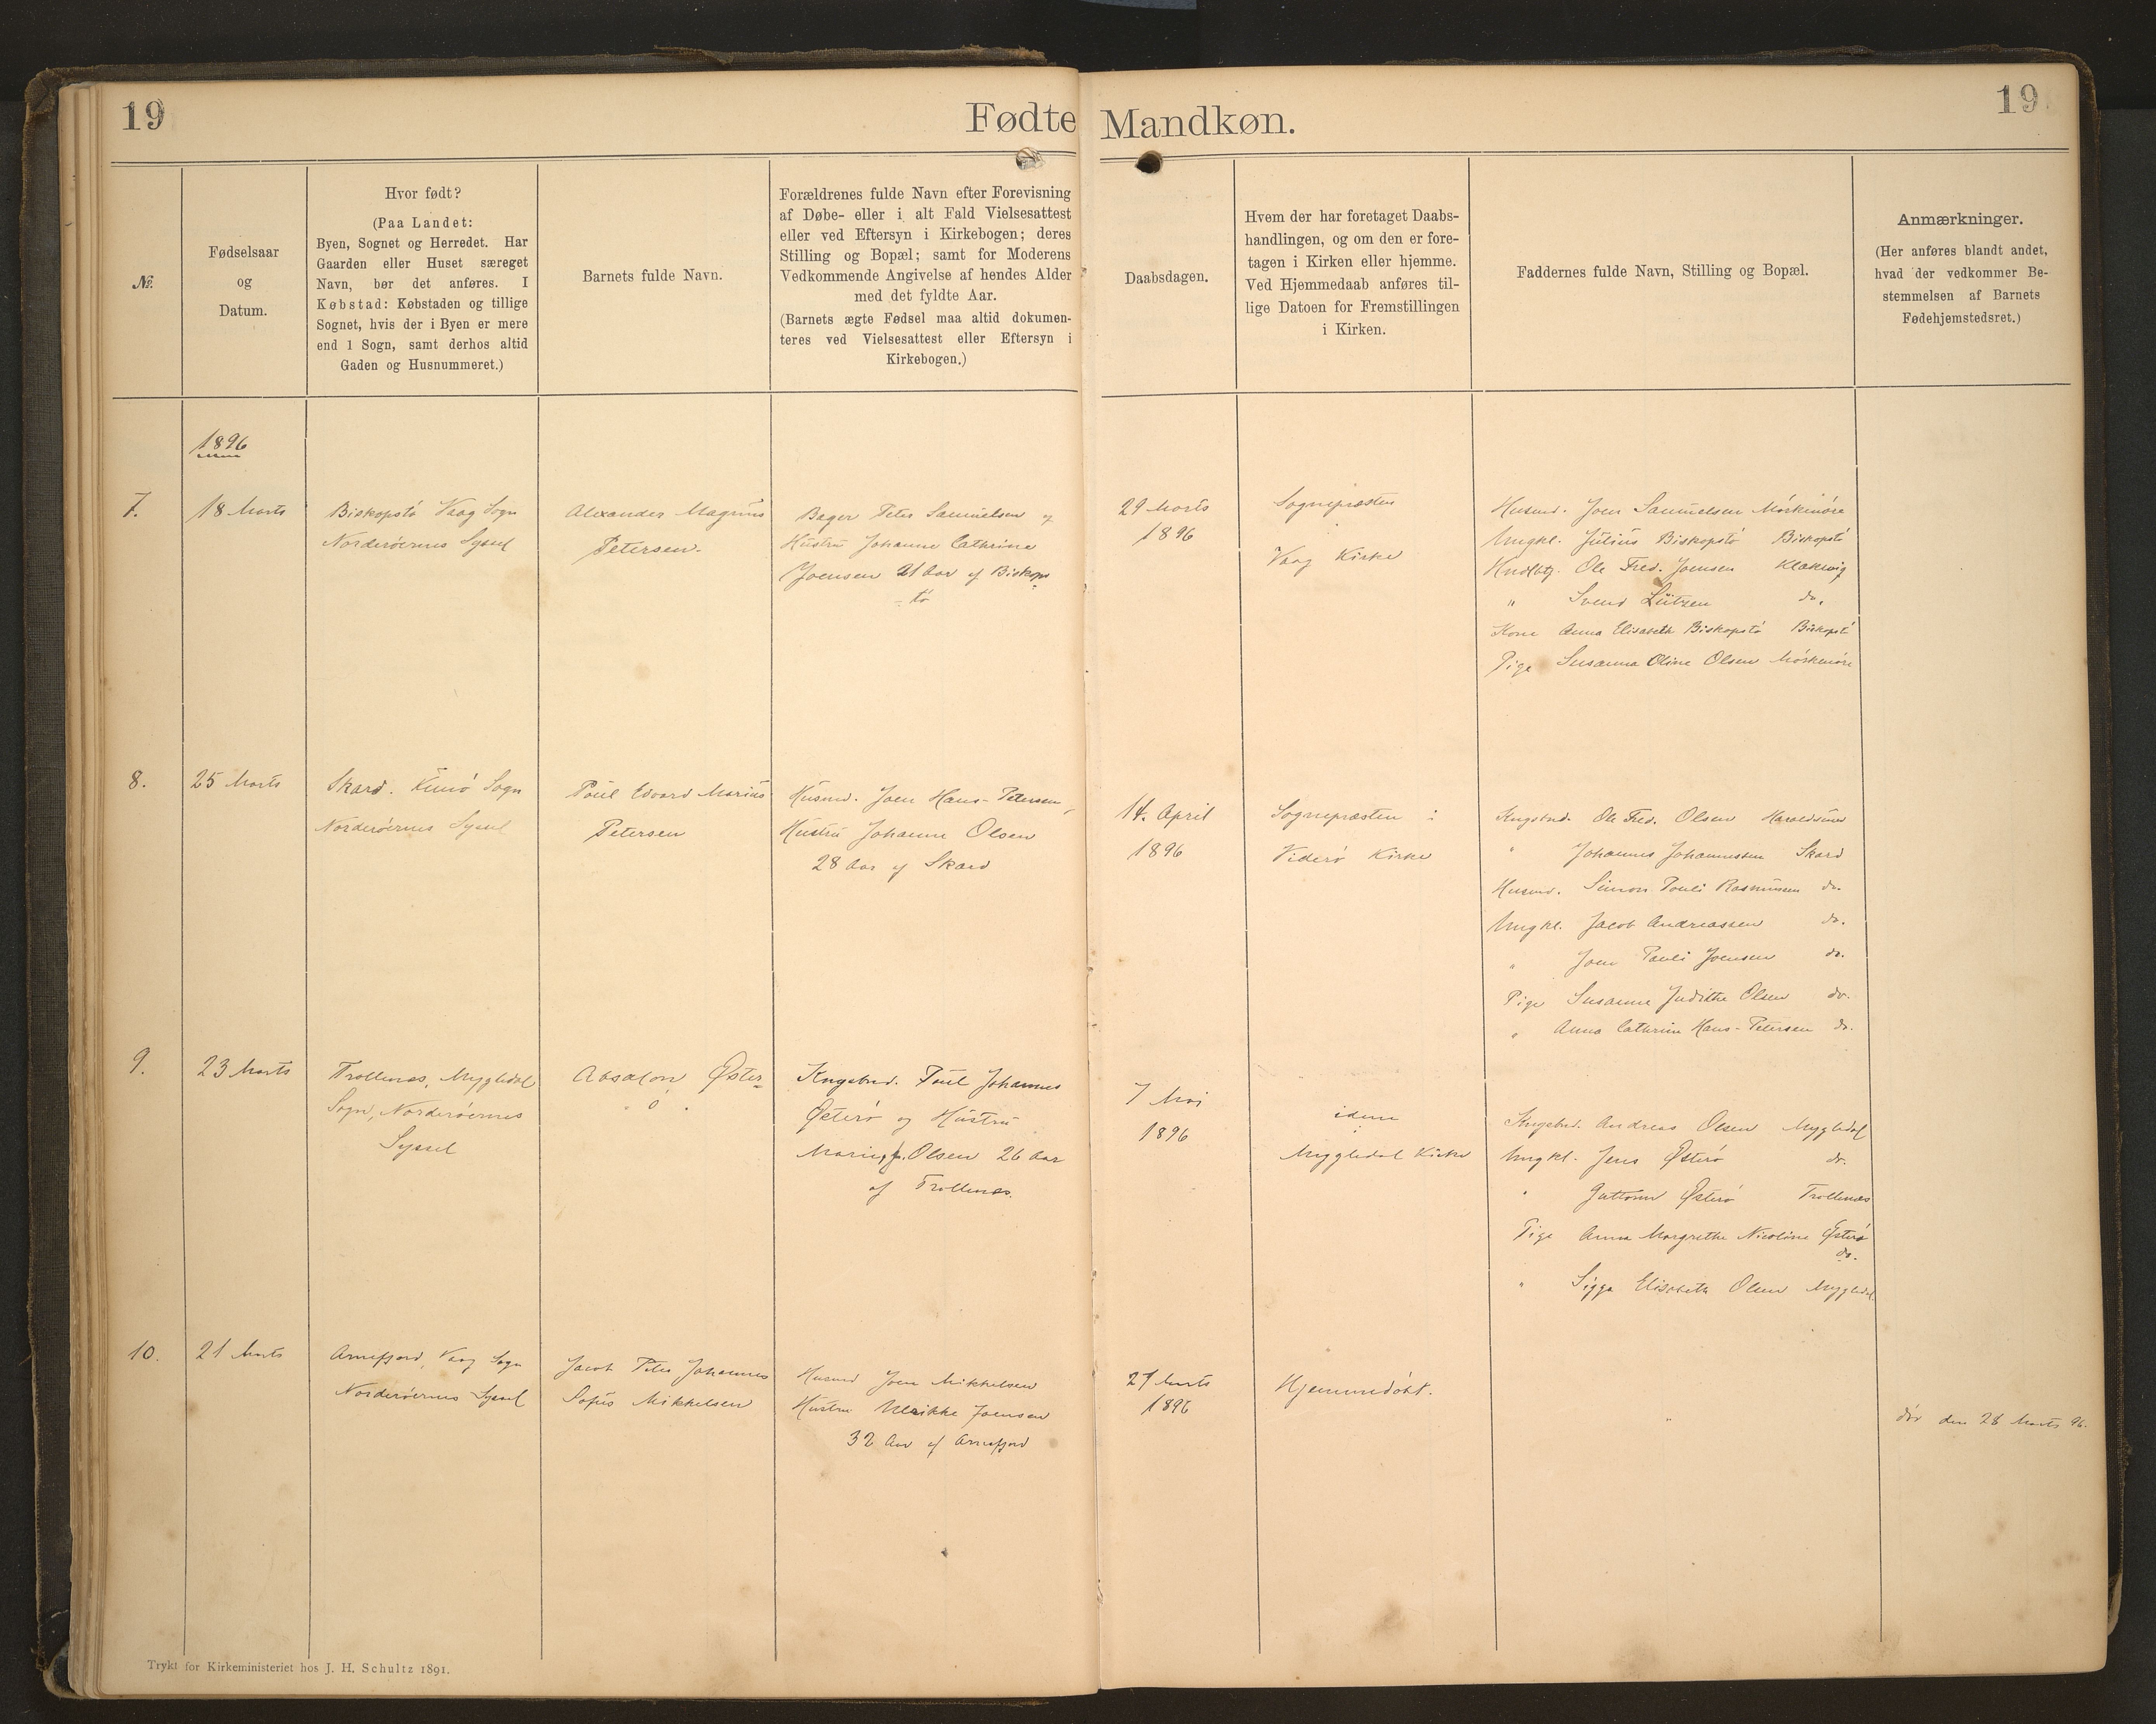 19
Fødte Mandkøn.
19
№.
Fødselsaar
og
Datum.
Hvor født?
(Paa Landet:
Byen, Sognet og Herredet. Har
Gaarden eller Huset særeget
Navn, bør det anføres. I
Købstad: Købstaden og tillige
Sognet, hvis der i Byen er mere
end 1 Sogn, samt derhos altid
Gaden og Husnummeret.)
Barnets fulde Navn.
Forældrenes fulde Navn efter Forevisning
af Døbe- eller i alt Fald Vielsesattest
eller ved Eftersyn i Kirkebogen; deres
Stilling og Bopæl; samt for Moderens
Vedkommende Angivelse af hendes Alder
med det fyldte Aar.
(Barnets ægte Fødsel maa altid dokumen-
teres ved Vielsesattest eller Eftersyn i
Kirkebogen.)
Daabsdagen.
Hvem der har foretaget Daabs-
handlingen, og om den er fore-
tagen i Kirken eller hjemme.
Ved Hjemmedaab anføres til-
lige Datoen for Fremstillingen
i Kirken.
Faddernes fulde Navn, Stilling og Bopæl.
Anmærkninger.
(Her anføres blandt andet,
hvad der vedkommer Be-
stemmelsen af Barnets
Fødehjemstedsret.)
1896
7.
18 Marts
Biskopstö Vaag Sogn
Norderöernes Syssel
Alexander Magnus
Petersen.
Bager Peter Samuelsen og
Hustru Johanne Cathrine
Joensen 21 Aar af Biskops
-tö
29 Marts
1896
Sognepræsten
Vaag Kirke
Husmd. Joen Samuelsen Mörkenöre
Ungkl. Julius Biskopstö Biskopstö
Hndlbtj. Ole Fred. Joensen Klaksvig
" Svend Lützen do.
Kone Anna Elisabeth Biskopstö Biskopstö
Pige Susanna Oline Olsen Mörkenöre
8.
25 Marts
Skard. Kunö Sogn
Norderöernes Syssel
Poul Edvard Marius
Petersen
Husmd. Joen Hans-Petersen,
Hustru Johanne Olsen
28 Aar af Skard
14. April
1896
Sognepræsten i
Viderö Kirke
Kngsbnd. Ole Fred. Olsen Haraldsund
" Johannes Johannessen Skard
Husmd. Simon Pouli Rasmussen do.
Ungkl. Jacob Andreassen do.
" Joen Pauli Joensen do.
Pige Susanne Judithe Olsen do.
" Anna Cathrine Hans-Petersen do.
9.
23 Marts
Trollenæs, Mygledal
Sogn, Norderöernes
Syssel
Absalon Øster-
ö
Kngsbnd. Poul Johannes
Østerö og Hustru
Marie, f. Olsen 26 Aar
af Trollenæs.
7 Mai
1896
idem
i
Myggledal Kirke
Kngsbnd. Andreas Olsen Mygledal
Ungkl. Jens Østerö do.
" Guttorm Østerö Trollenæs
Pige Anna Margrethe Nicoline Østerö
do.
" Sigga Elisabeth Olsen Mygledal
10.
21 Marts
Arnefjord, Vaag Sogn
Norderöernes Syssel
Jacob Peter Johannes
Sofus Mikkelsen
Husmd Joen Mikkelsen
Hustru Ulrikke Joensen
32 Aar af Arnefjord
27 Marts
1896
Hjemmedöbt.
"
död den 28 Marts 96.
Trykt for Kirkeministeriet hos J. H. Schultz 1891.